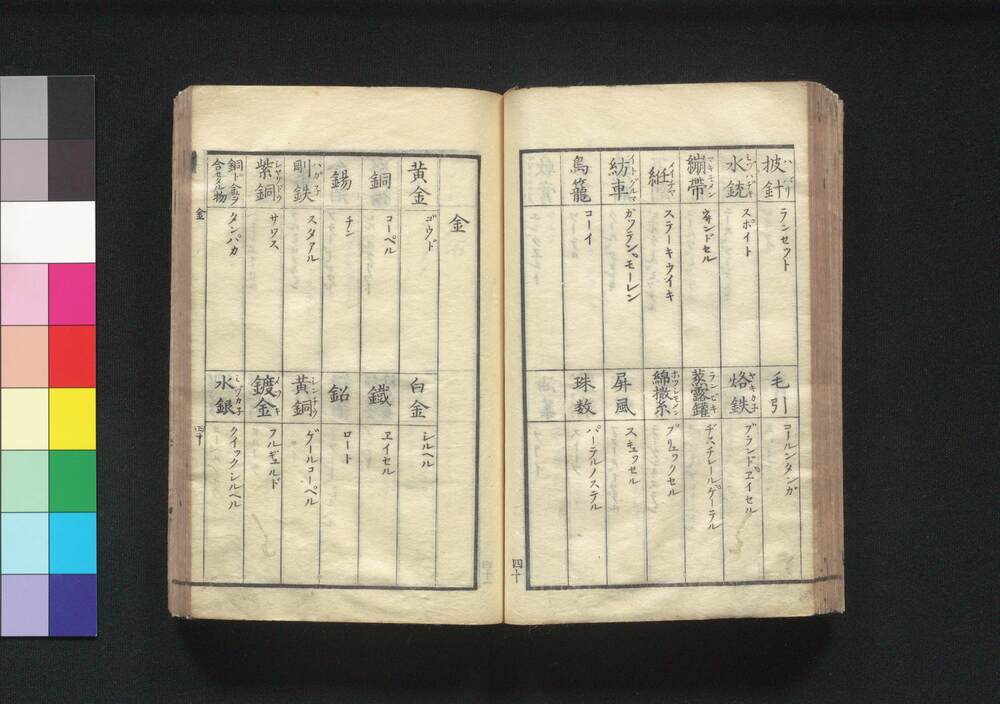 披針 ランセット
水銃 スポイト
繃帯 ウィンドセル
紝 ステーキウイキ
紡車 ガワテン、モーレン
鳥籠 コーイ
毛引 コールンタンガ
烙鉄 ブランドヱイセル
蒸露鑵 ヂスチレールゲーテル
綿撒糸 プリュックセル
屏風 スキュッセル
珠数 パーテルノステル
四十
金
黄金 ゴウド
銅 コーペル
錫 チン
剛鉄 スタアル
紫銅 サワス
銅ト金ヲ含セタル物 タンバカ
白金 シルヘル
鐵 ヱイセル
鉛 ロート
黄銅 ゲールコーペル
鍍金 フルギュルド
水銀 クイックシルヘル
金
四十